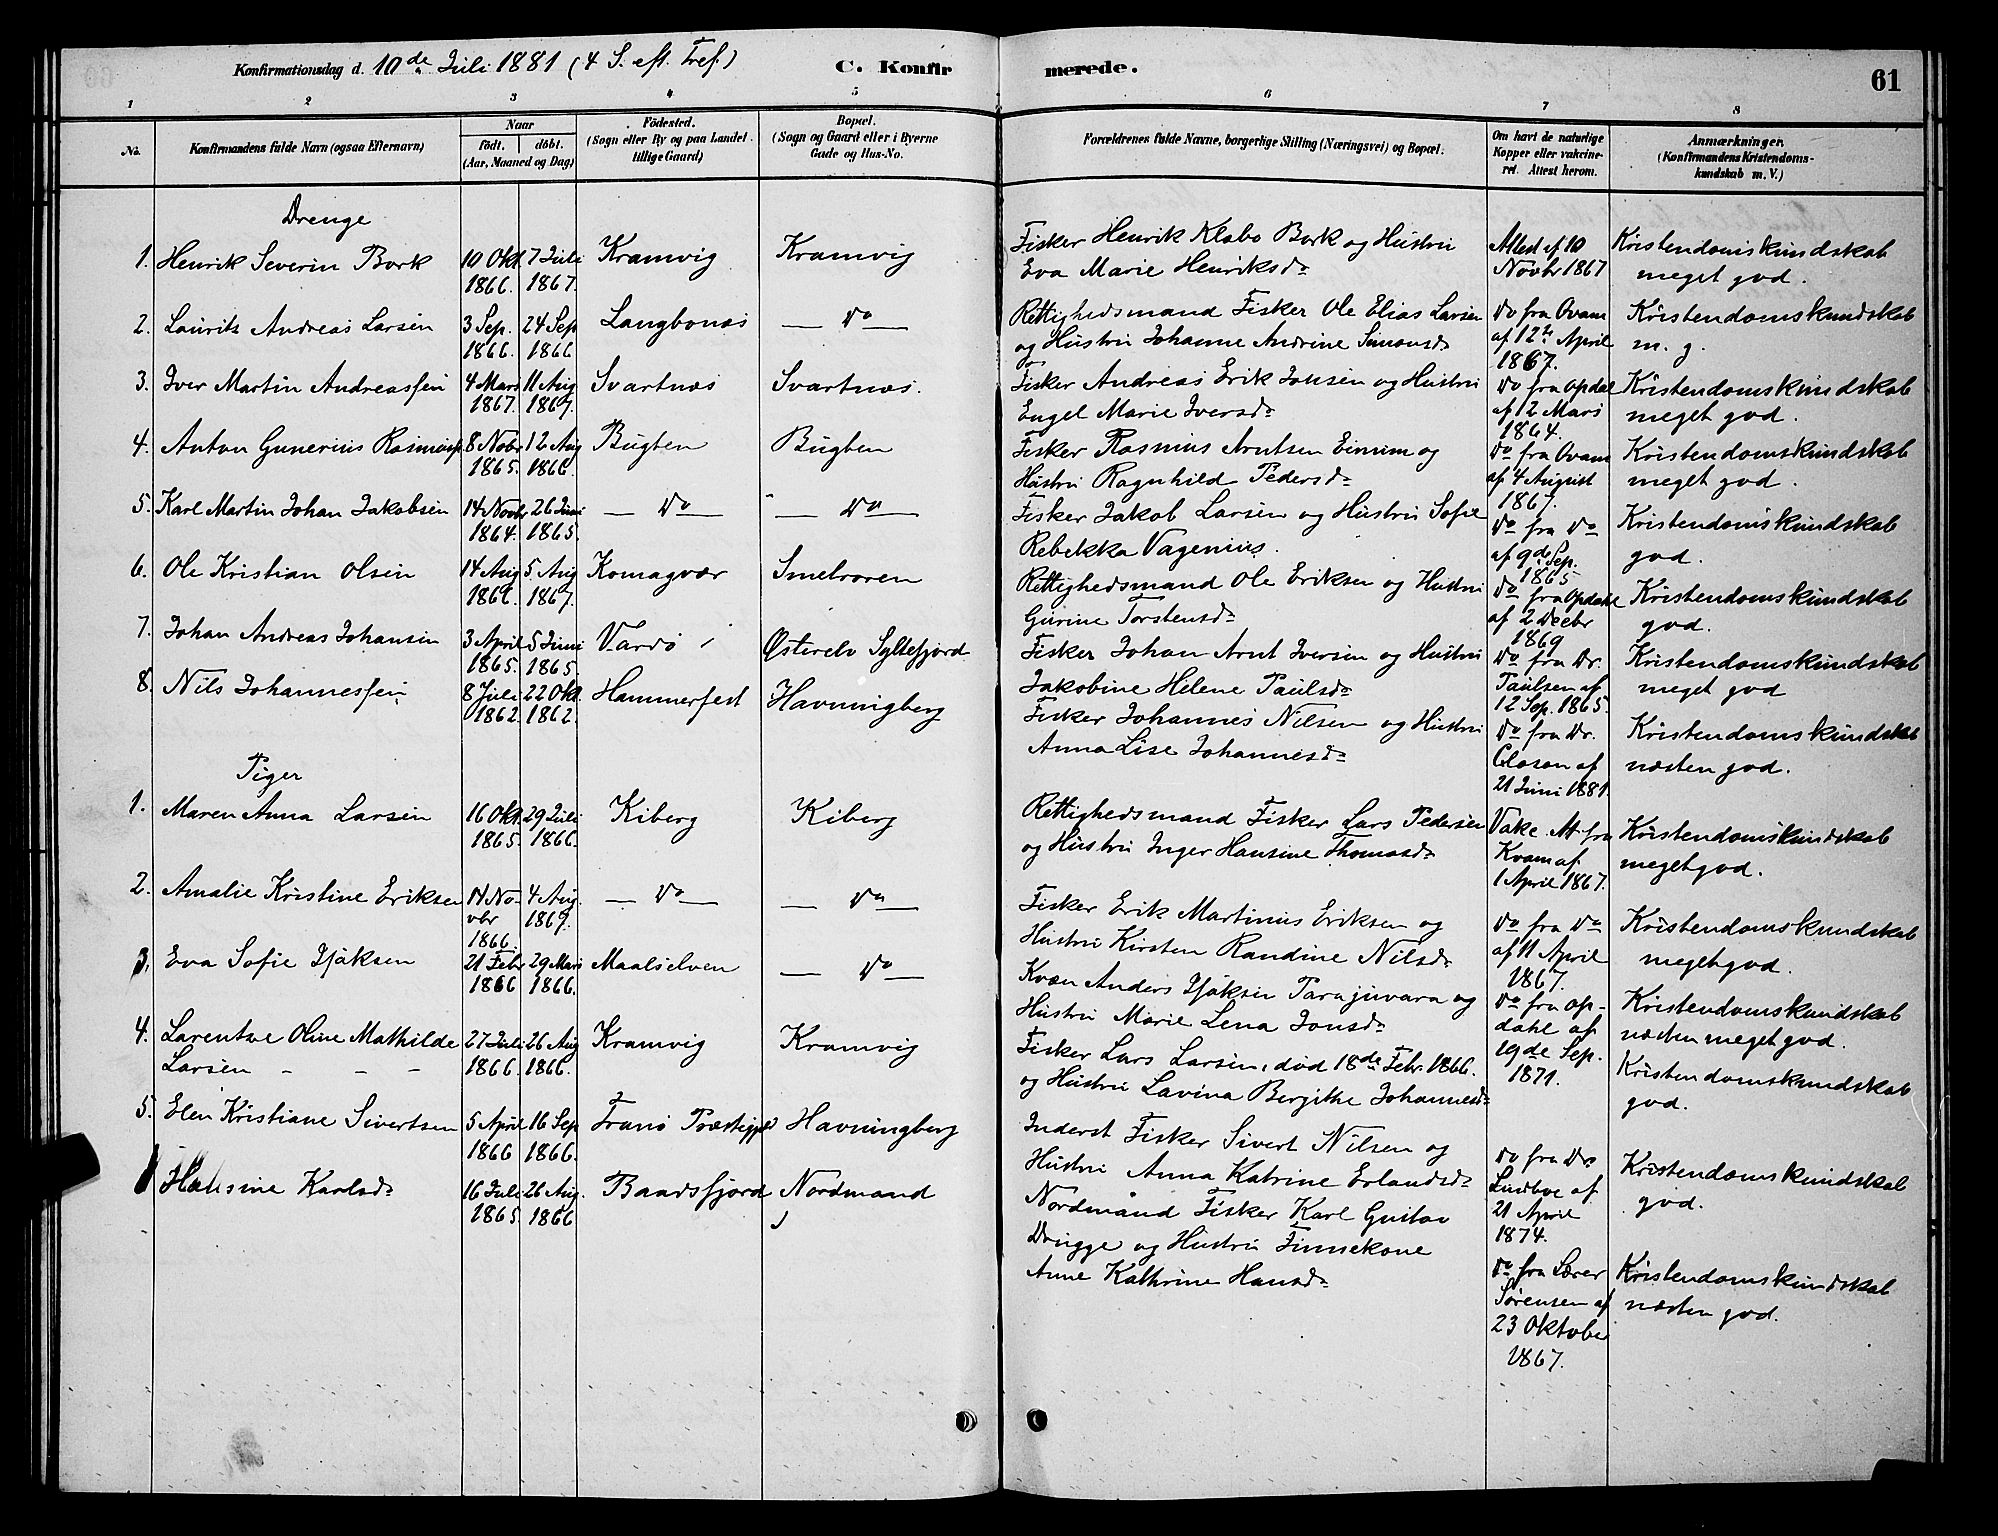 Konfirmationsdag d. 10de Juli 1881 (4 S. eft. Tref.)
C. Konfirmerede.
61
1 2 3 4 5 6 7 8
No.
Konfirmandens fulde Navn (ogsaa Efternavn)
Naar
födt. döbt.
(Aar, Maaned og Dag)
Födested.
(Sogn eller By og paa Landet tillige Gaard)
Bopæl.
(Sogn og Gaard eller i Byerne
Gade og Hus-No.
Forældrenes fulde Navne, borgerlige Stilling (Næringsvei) og Bopæl.
Om havt de naturlige
Kopper eller vakcine-
ret. Attest herom.
Anmærkninger.
(Konfirmandens Kristendoms-
kundskab m. V.)
Drenge
1. Henrik Severin Bork 10 Okt. 1866. 7 Juli 1867. Kramvig Kramvig
Fisker Henrik Klabo Bork og Hustru
Eva Marie Henriksdr
Attest af 10
Novbr 1867
Kristendomskundskab
meget god.
2. Laurits Andreas Larsen 3 Sep. 1866. 24 Sep 1866 Langbonæs — Do —
Rettighedsmand Fisker Ole Elias Larsen
og Hustru Johanne Andrine Simonsdr
Do fra Qvam
af 12te April
1867.
Kristendomskundskab
m. g.
3. Iver Martin Andreassen 4 Mars 1867. 11 Aug 1867. Svartnæs Svartnæs.
Fisker Andreas Erik Jonsen og Hustru
Engel Marie Iversdr
Do fra Opdal
af 12 Mars
1864.
Kristendomskundskab
meget god.
4. Anton Gunerius Rasmuss. 8 Nobr 1865. 12 Aug 1866. Bugten Bugten
Fisker Rasmus Arntsen Einum og
Hustru Ragnhild Pedersdr
Do fra Qvam
af 4 August
1867.
Kristendomskundskab
meget god.
5. Karl Martin Johan Jakobsen 14 Novbr 1864. 26 Juni 1865. — Do — — Do —
Fisker Jakob Larsen og Hustru Sofie
Rebekka Vagenius.
Do fra Do
af 9de Sep.
1865
Kristendomskundskab
god.
6. Ole Kristian Olsen 14 Aug 5. Aug 1867. Komagvær Smelroren
Rettighedsmand Ole Eriksen og Hustru
Gurine Torstensdr
Do fra Opdahl
af 2 Decbr
1869
Kristendomskundskab
god.
7. Johan Andreas Johansen 3 April 1865. 5 Juni 1865. Vardö Østerelv Syltefjord
Fisker Johan Arnt Iversen og Hustru
Jakobine Helene Paulsdr
Do fra Dr.
Paulsen af
12 Sep. 1865.
Kristendomskundskab
meget god
8. Nils Johannessen 8 Juli 1862. 22 Okt. 1862. Hammerfest Havningberg
Fisker Johannes Nilsen og Hustru
Anna Lise Johannesdr
Do fra Dr.
Closon af
21 Juni 1881.
Kristendomskundskab
næsten god.
Piger
1. Maren Anna Larsen 16 Okt. 1865. 29 Juli 1866. Kiberg Kiberg
Rettighedsmand Fisker Lars Pedersen
og Hustru Inger Hansine Thomasdr
Vake. At. fra
Kvam af
1 April 1867.
Kristendomskundskab
meget god.
2. Amalie Kristine Eriksen 14 No-vbr 1866. 4 Aug. — Do — — Do —
Fisker Erik Martinus Eriksen og
Hustru Kirsten Randine Nilsdr
Do fra Do
af 11 April
1867.
Kristendomskundskab
meget god.
3. Eva Sofie Isaksen 21 Febr 1866 29 Mars 1866. Maalselven — Do —
Kvæn Anders Isaksen Parajuvara og
Hustru Marie Lena Jonsdr
Do fra Op-
dahl af
19de Sep.
1871.
Kristendomskundskab
næsten meget god.
4. Larentse Oline Mathilde
Larsen - - - 27 Juli 1866. 26 Aug 1866. Kramvig Kramvig
Fisker Lars Larsen, död 18de Febr. 1866.
og Hustru Lavina Bergithe Johannesdr
Kristendomskundskab
god.
5. Elen Kristiane Sivertsen 5 April 1866 16 Sep 1866. Tranö Præstegjæld Havningberg
Inderst Fisker Sivert Nilsen og
Hustru Anna Katrine Erlandsdr
Do fra Dr.
Lindboe af
21 April
1874.
Kristendomskundskab
god.
Hansine Karlsdr 16 Juli 1865 26 Aug. 1866 Baadsfjord Nordmand
Nordmand Fisker Karl Gustav
Drugge og Hustru Finnekone
Anne Kathrine Hansdr
Do fra Lærer
Sørensen af
23 Oktober
1867.
Kristendomskundskab
næsten god.